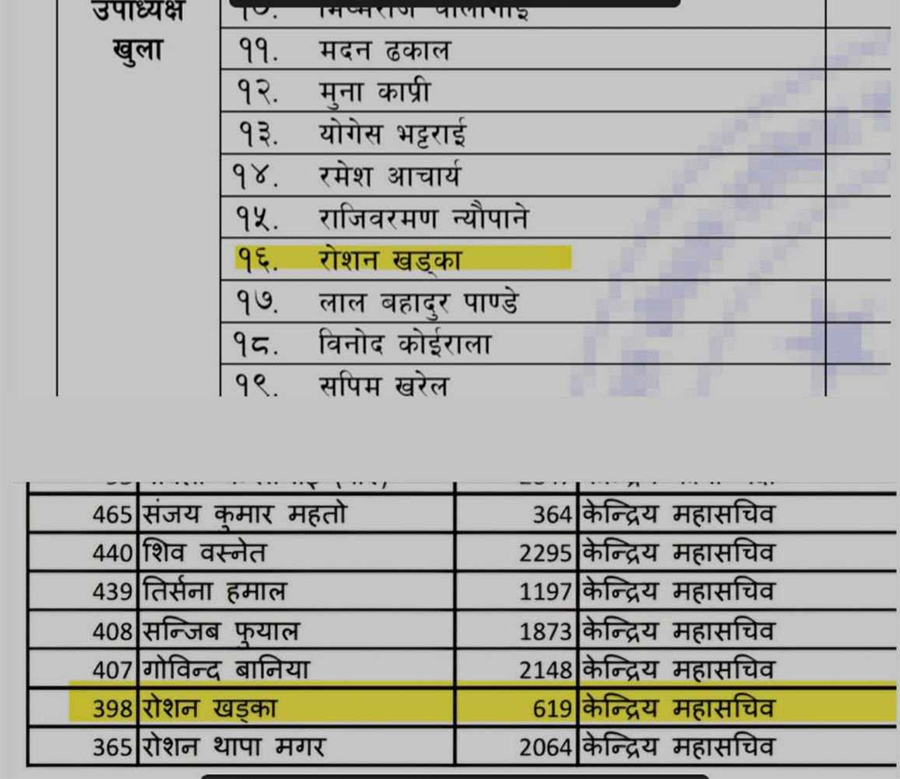 उपाध्यक्ष
खुला
१०.
११. मदन ढकाल
१२. मुना काप्री
१३. योगेस भट्टराई
१४. रमेश आचार्य
१५. राजिवरमण न्यौपाने
१६. रोशन खड्का
१७. लाल बहादुर पाण्डे
१८. विनोद कोईराला
१९. सपिम खरेल
465 संजय कुमार महतो 364 केन्द्रिय महासचिव
440 शिव वस्नेत 2295 केन्द्रिय महासचिव
439 तिर्सना हमाल 1197 केन्द्रिय महासचिव
408 सन्जिब फुयाल 1873 केन्द्रिय महासचिव
407 गोविन्द बानिया 2148 केन्द्रिय महासचिव
398 रोशन खड्का 619 केन्द्रिय महासचिव
365 रोशन थापा मगर 2064 केन्द्रिय महासचिव